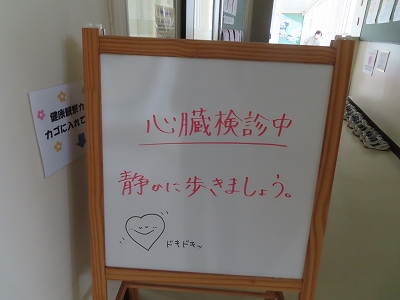 心臓検診中
静かに歩きましょう。
ドキドキッ
健康観察カ
カゴに入れて